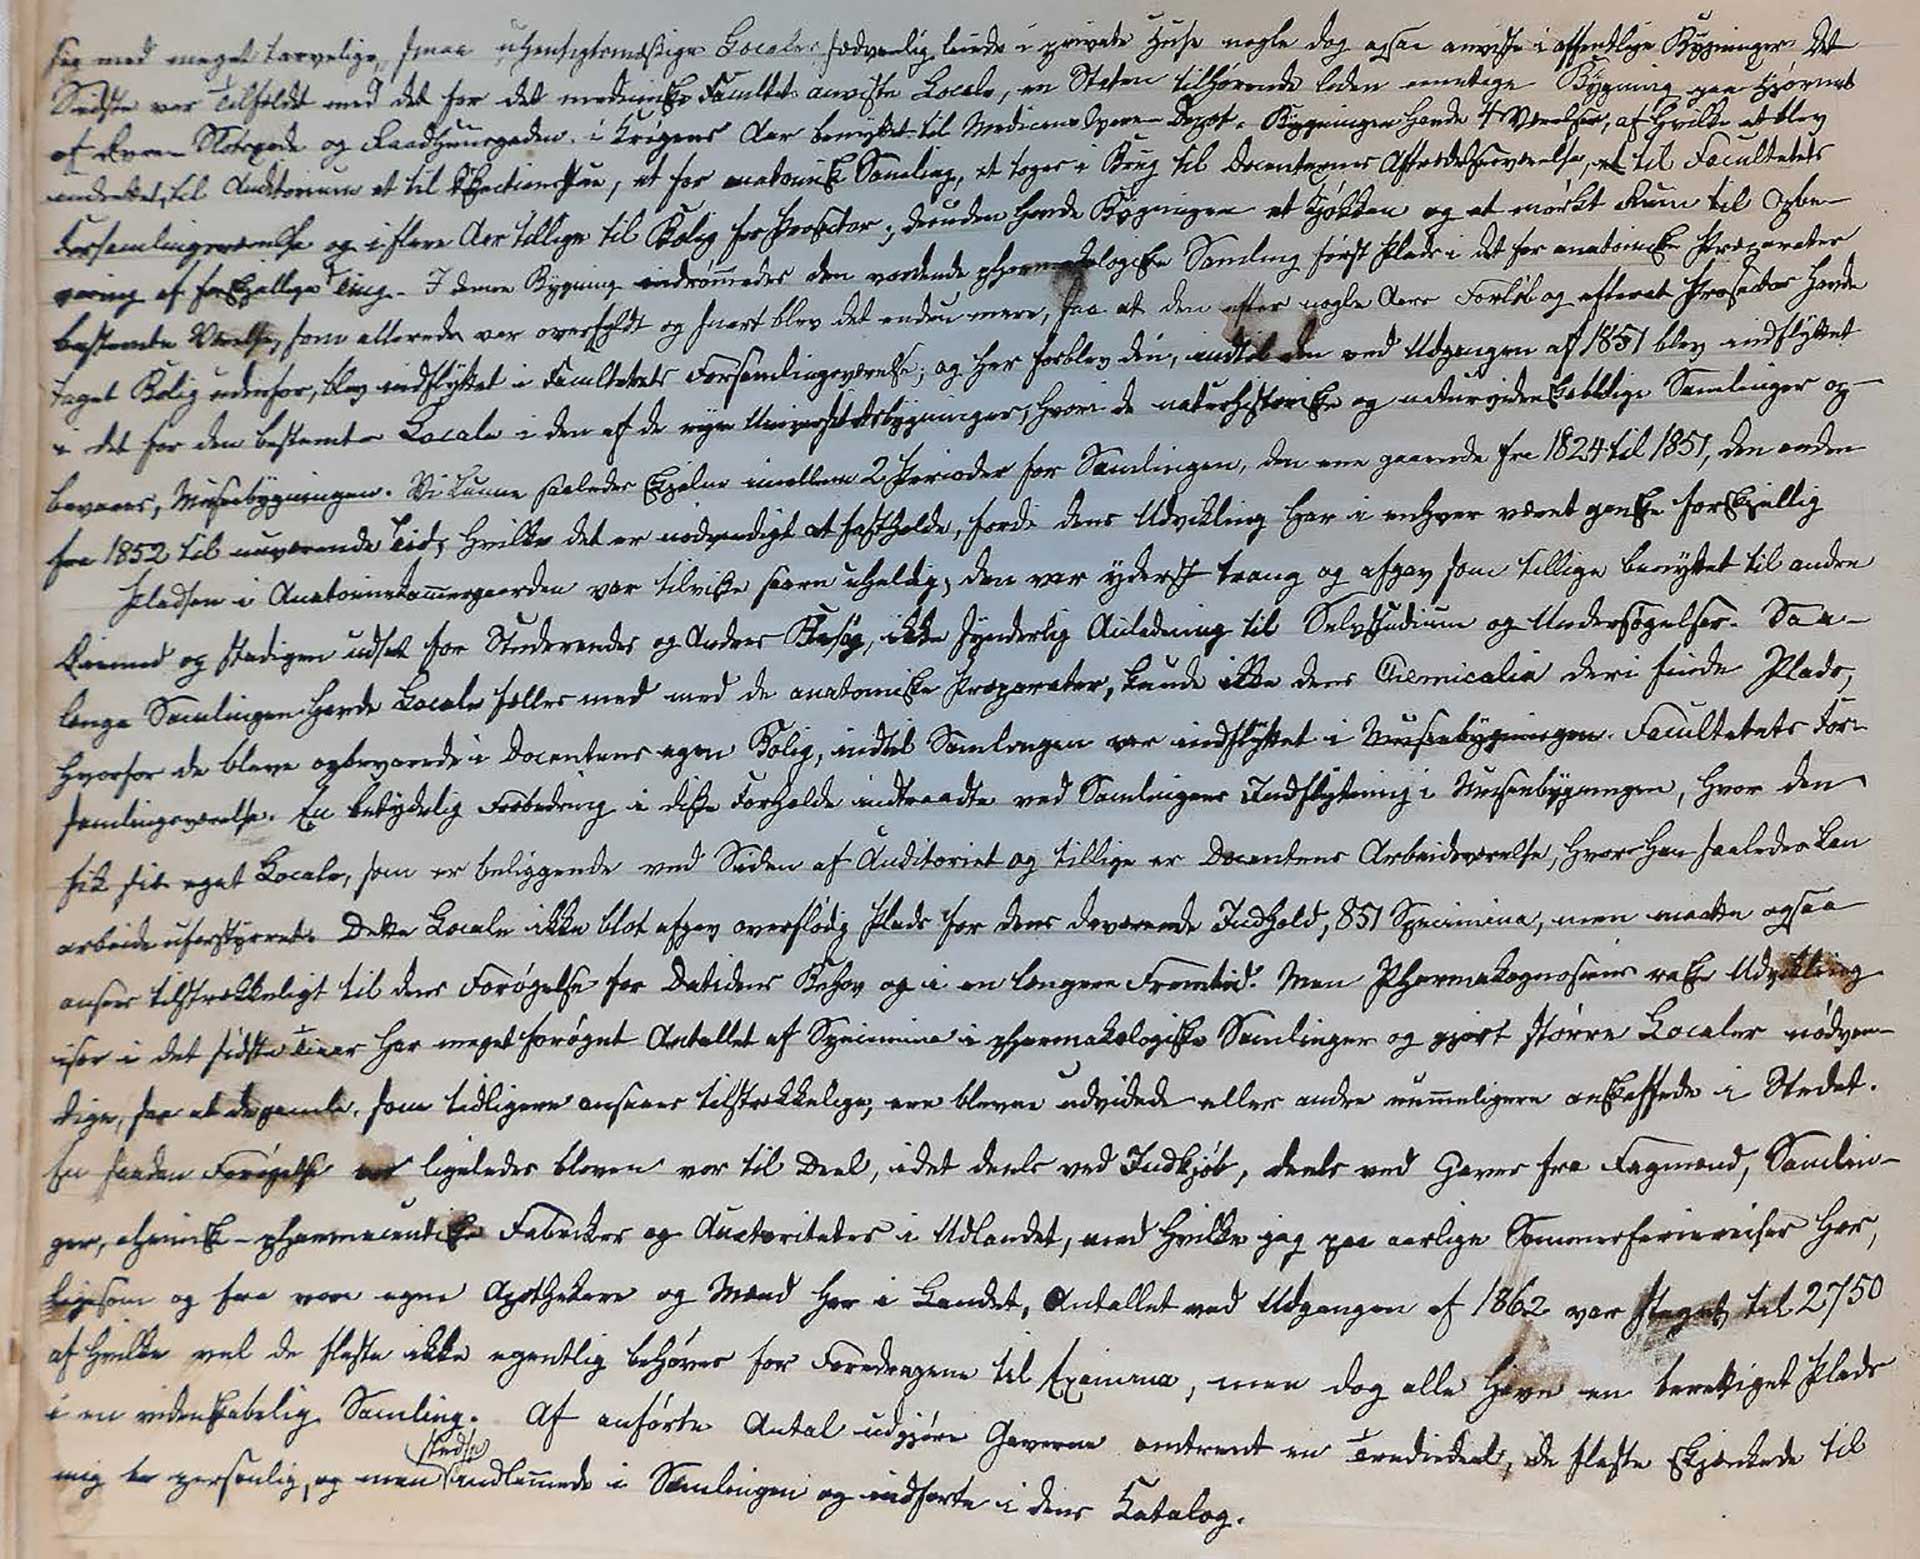 sig med meget tarvelige, smaa uhensigtsmæssige Localer sædvanlig leiede i private Huse nogle dog ogsaa anviste i offentlige Bygninger. Det
Sidste var Tilfældet med det for det medicinske Facultet anviste Locale, en Staten tilhørende liden eenetage Bygning paa Hjørnet
af Øvre Slotsgade og Raadhuusgaden, i Krigens Aar benyttet til Medicin Depot. Bygningen havde 4 Værelser, af hvilke et blev
indrettet til Auditorium et til Sectionsstue, et for anatomisk Samling, et toges i Brug til Docenternes Aftrædelsesværelse, et til Facultetets
Forsamlingsværelse og i flere Aar tillige til Bolig for Prosector; desuden havde Bygningen et Kjøkken og et mørkt Rum til Opbe-
varing af forskjellige Ting. I denne Bygning indrømmedes den vordende pharmakologiske Samling først Plads i det for anatomiske Præparater
bestemte Værelse, som allerede var overfyldt og snart blev det endnu mere, saa at den efter nogle Aars Forløb og efterat Prosector havde
taget Bolig udenfor, blev indflyttet i Facultetets Forsamlingsværelse; og her forblev den, indtil den ved Udgangen af 1851 blev indflyttet
i det for den bestemte Locale i den af de nye Universitetsbygninger, hvori de naturhistoriske og naturvidenskabelige Samlinger op-
bevares, Museebygningen. Vi kunne saaledes skjelne imellem 2 Perioder for Samlingen, den ene gaaende fra 1824 til 1851, den anden
fra 1852 til nuværende Tid, hvilke det er nødvendigt at fastholde, fordi dens Udvikling har i enhver været ganske forskjellig
Pladsen i Anatomiekammergaarden var tilvisse saare uheldig; den var yderst trang og afgav som tillige benyttet til andre
Øiemed og stadigen udsat for Studerendes og Andres Besøg, ikke synderlig Anledning til Selvstudium og Undersøgelser. Saa-
længe Samlingen havde Locale fælles med med de anatomiske Præparater, kunde ikke dens Chemicalia deri finde Plads,
hvorfor de bleve opbevarede i Docentens egen Bolig, indtil Samlingen var indflyttet i Museebygningen. Facultetets For-
samlingsværelse. En betydelig Forbedring i disse Forholde indtraadte ved Samlingens Indflytning i Museebygningen, hvor den
fik sit eget Locale, som er beliggende ved Siden af Auditoriet og tillige er Docentens Arbeidsværelse, hvor han saaledes kan
arbeide uforstyrret. Dette Locale ikke blot afgav overflødig Plads for dens daværende Indhold, 851 Specimina, men maatte ogsaa
ansees tilstrækkeligt til dens Forøgelse for Datidens Behov og i en længere Fremtid. Men Pharmakognosiens raske Udvikling
især i det sidste Tiaar har meget forøget Antallet af Specimina i pharmakologiske Samlinger og gjort større Localer nødven-
dige, saa at de gamle, som tidligere ansaaes tilstrækkelige, ere blevne udvidede eller andre rummeligere anskaffede i Stedet.
En saadan Forøgelse er ligeledes bleven vor til Deel, idet deels ved Indkjøb, deels ved Gaver fra Fagmænd, Samlin-
ger, chemisk-pharmaceutiske Fabriker og Auctoriteter i Udlandet, med hvilke jeg paa aarlige Sommerferiereiser har,
ligesom og fra vore egne Apothekere og Mænd her i Landet, Antallet ved Udgangen af 1862 var steget til 2750
af hvilke vel de fleste ikke egentlig behøves for Foredragene til Examina, men dog alle have en berettiget Plads
i en videnskabelig Samling. Af anførte Antal udgjøre Gaverne omtrent en Trediedeel, de fleste skjænkede til
mig personlig, og men stedse indlemmede i Samlingen og indførte i dens Katalog.